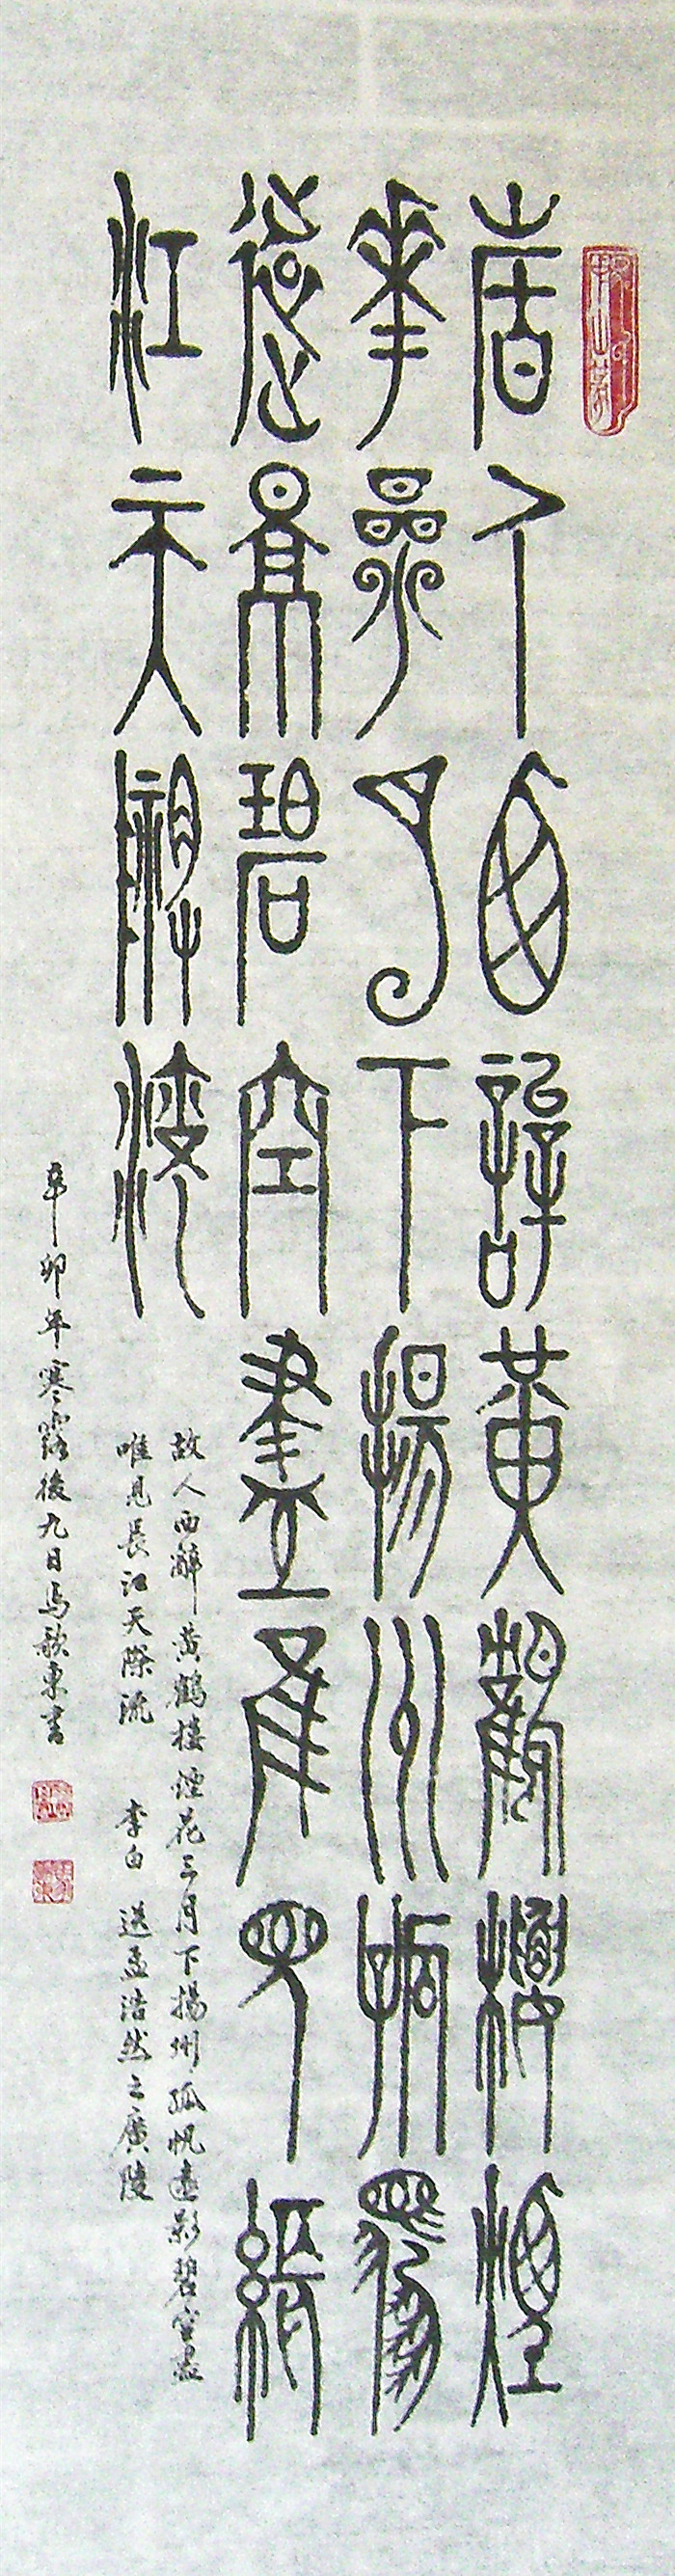 故人西辭黃鶴樓煙
花三月下揚州孤帆
遠影碧空盡唯見長
江天際流
故人西辭黃鶴樓煙花三月下揚州孤帆遠影碧空盡
唯見長江天際流 李白 送孟浩然之廣陵
辛卯年寒露後九日馬歌東書